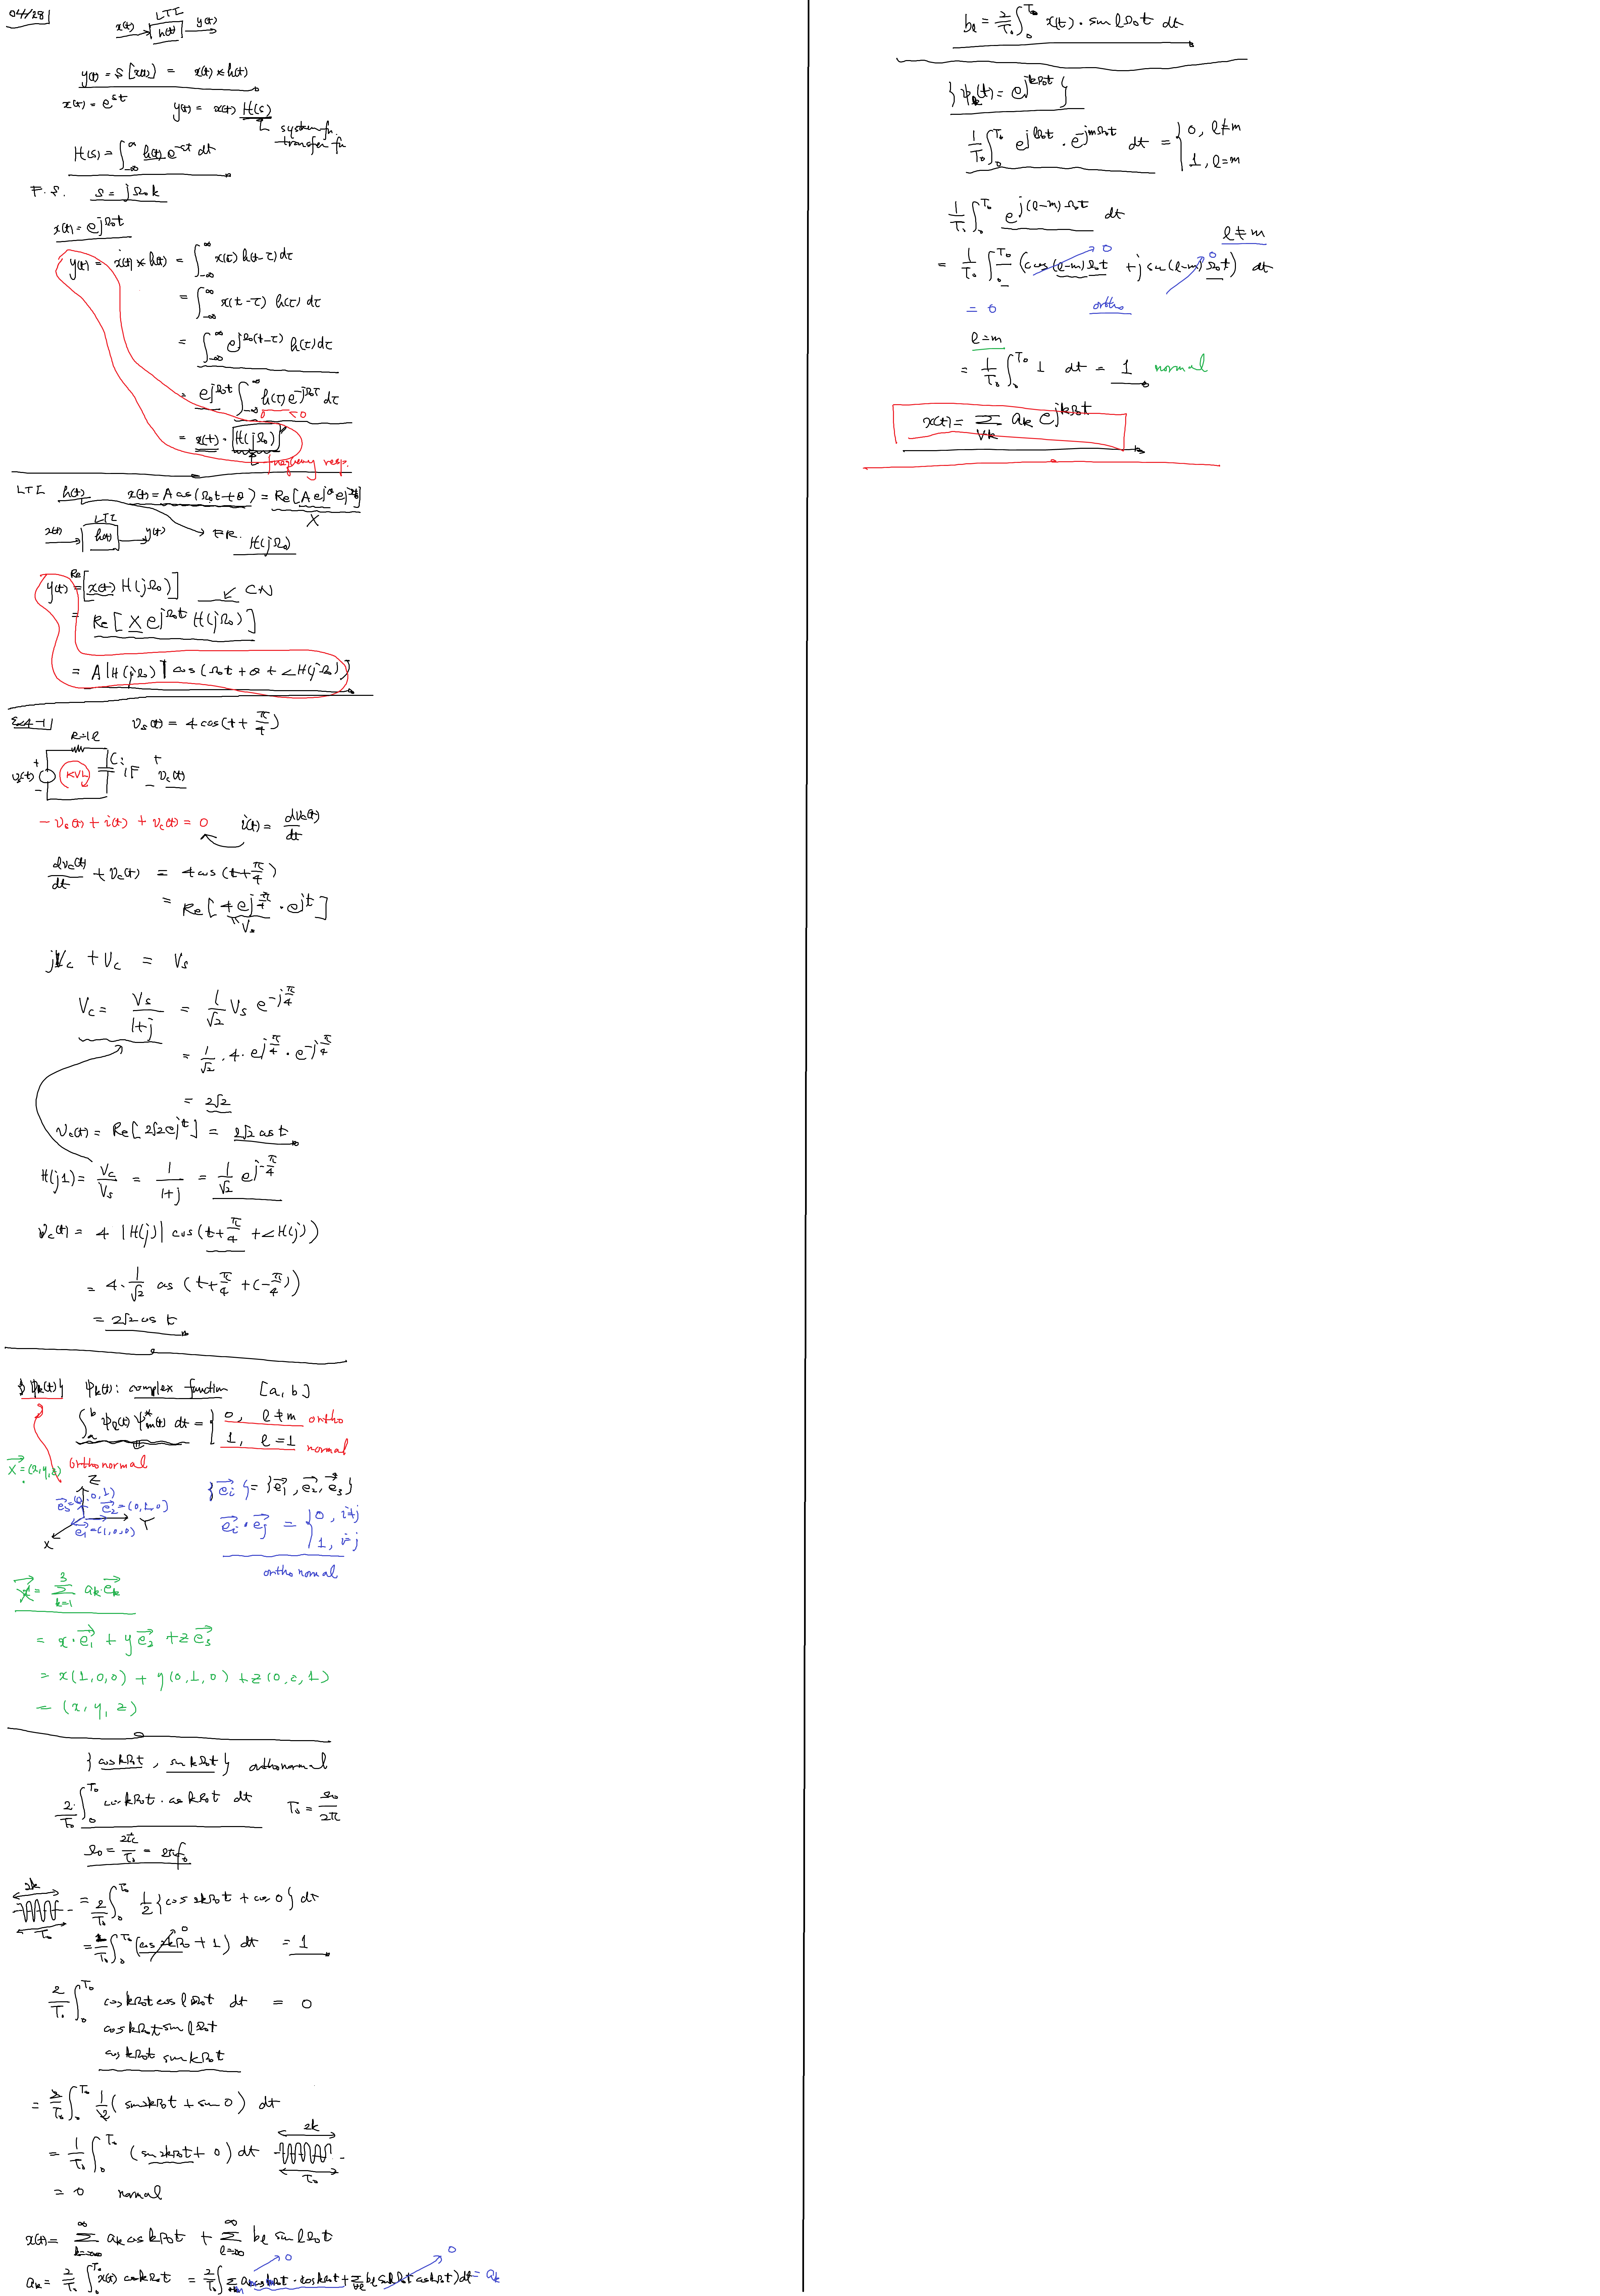 04/28
LTI
x(t) h(t) y(t)
y(t) = S[x(t)] = x(t) * h(t)
x(t) = e^{st} y(t) = x(t) H(s)
system fn.
transfer fn
H(s) = ∫_{-∞}^{∞} h(t) e^{-st} dt
F.S. s = jΩ₀k
x(t) = e^{jΩ₀t}
y(t) = x(t) * h(t) = ∫_{-∞}^{∞} x(τ) h(t-τ) dτ
= ∫_{-∞}^{∞} x(t-τ) h(τ) dτ
= ∫_{-∞}^{∞} e^{jΩ₀(t-τ)} h(τ) dτ
= e^{jΩ₀t} ∫_{-∞}^{∞} h(τ) e^{-jΩ₀τ} dτ
= x(t) · H(jΩ₀)
frequency resp.
LTI h(t) x(t) = A cos(Ω₀t+θ) = Re[A e^{jθ} e^{jΩ₀t}]
X
LTI
x(t) h(t) y(t) F.R. H(jΩ₀)
y(t) = Re[x(t) H(jΩ₀)] CN
= Re[X e^{jΩ₀t} H(jΩ₀)]
= A|H(jΩ₀)| cos(Ω₀t + θ + ∠H(jΩ₀))
Ex4-1 v_s(t) = 4cos(t + π/4)
KVL
v_c(t)
-v_s(t) + i(t) + v_c(t) = 0 i(t) = dv_c(t)/dt
dv_c(t)/dt + v_c(t) = 4cos(t+π/4)
= Re[4e^{jπ/4} · e^{jt}]
V_s
jV_c + V_c = V_s
V_c = V_s/(1+j) = 1/√2 V_s e^{-jπ/4}
= 1/√2 · 4 · e^{jπ/4} · e^{-jπ/4}
= 2√2
v_c(t) = Re[2√2 e^{jt}] = 2√2 cos t
H(j1) = V_c/V_s = 1/(1+j) = 1/√2 e^{j-π/4}
v_c(t) = 4 |H(j)| cos(t+π/4 + ∠H(j))
= 4 · 1/√2 cos(t+π/4 + (-π/4))
= 2√2 cos t
{ψ_k(t)} ψ_k(t): complex function [a, b]
∫_a^b ψ_l(t) ψ_m*(t) dt = { 0, l≠m ortho
1, l=1 normal
orthonormal
X = (x, y, z)
Z
e₃=(0,0,1) e₂=(0,1,0) Y
e₁=(1,0,0)
X
{e_i} = {e₁, e₂, e₃}
e_i · e_j = { 0, i≠j
1, i=j
orthonormal
X = Σ_{k=1}^{3} a_k e_k
= x·e₁ + y e₂ + z e₃
= x(1,0,0) + y(0,1,0) + z(0,0,1)
= (x, y, z)
{cos kΩ₀t, sin kΩ₀t} orthonormal
2/T₀ ∫_0^{T₀} cos kΩ₀t · cos kΩ₀t dt T₀ = Ω₀/2π
Ω₀ = 2π/T₀ = 2πf₀
2k
T₀
= 2/T₀ ∫_0^{T₀} 1/2 {cos 2kΩ₀t + cos 0} dt
= 1/T₀ ∫_0^{T₀} (cos 2kΩ₀ + 1) dt = 1
0
2/T₀ ∫_0^{T₀} cos kΩ₀t cos lΩ₀t dt = 0
cos kΩ₀t sin lΩ₀t
cos kΩ₀t sin kΩ₀t
= 2/T₀ ∫_0^{T₀} 1/2 (sin 2kΩ₀t + sin 0) dt
= 1/T₀ ∫_0^{T₀} (sin 2kΩ₀t + 0) dt
2k
T₀
= 0 normal
x(t) = Σ_{k=-∞}^{∞} a_k cos kΩ₀t + Σ_{l=-∞}^{∞} b_l sin lΩ₀t
a_k = 2/T₀ ∫_0^{T₀} x(t) cos kΩ₀t = 2/T₀ ∫ (Σ a_k cos kΩ₀t · cos kΩ₀t + Σ_{∀l} b_l sin lΩ₀t cos kΩ₀t) dt = a_k
0
0
b_l = 2/T₀ ∫_0^{T₀} x(t) · sin lΩ₀t dt
{ψ_k(t) = e^{jkΩ₀t}}
1/T₀ ∫_0^{T₀} e^{jlΩ₀t} · e^{-jmΩ₀t} dt = { 0, l≠m
1, l=m
1/T₀ ∫_0^{T₀} e^{j(l-m)Ω₀t} dt
l≠m
= 1/T₀ ∫_0^{T₀} (cos(l-m)Ω₀t + j sin(l-m)Ω₀t) dt
0
0
= 0 ortho
l=m
= 1/T₀ ∫_0^{T₀} 1 dt = 1 normal
x(t) = Σ_{∀k} a_k e^{jkΩ₀t}